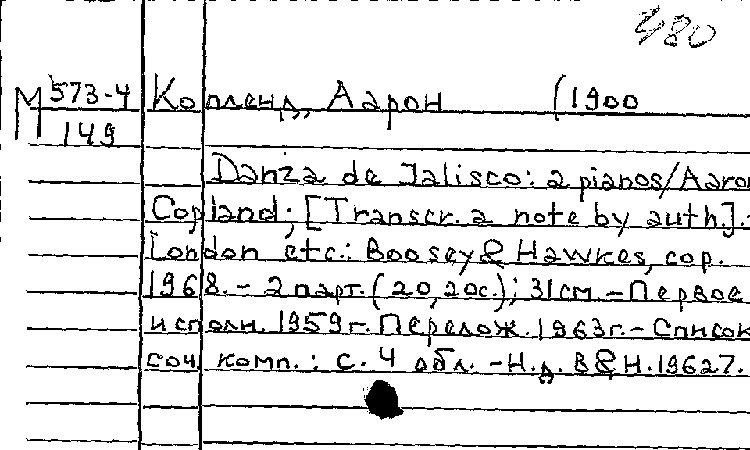 380
М 573-4 Копленд, Аарон (1900
149
Danza de Jalisco: 2 pianos/Aaron
Copland; [Transcr. a note by auth.].-
London etc.: Boosey & Hawkes, cop.
1968. - 2 парт. (20, 20с.); 31см. - Первое
исполн. 1959г. Перелож. 1963г. - Список
соч. комп.: с. 4 обл. - Н.д. B&H.19627.